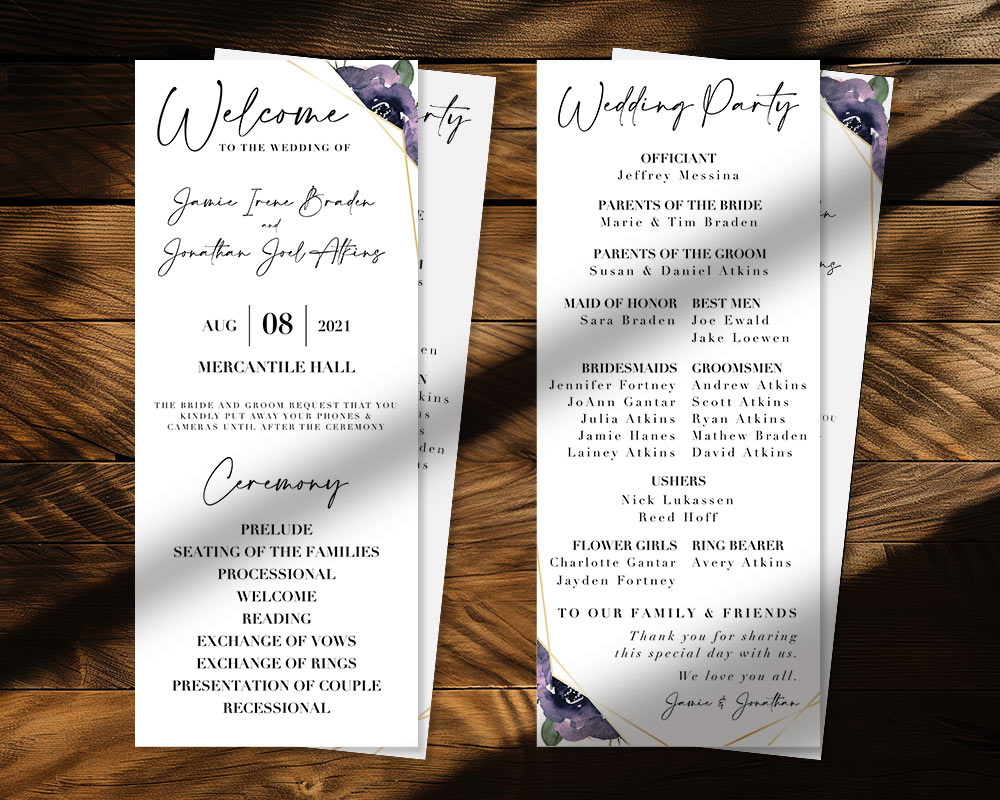 Welcome
TO THE WEDDING OF
Jamie Irene Braden
and
Jonathan Joel Atkins
AUG 08 2021
MERCANTILE HALL
THE BRIDE AND GROOM REQUEST THAT YOU
KINDLY PUT AWAY YOUR PHONES &
CAMERAS UNTIL AFTER THE CEREMONY
Ceremony
PRELUDE
SEATING OF THE FAMILIES
PROCESSIONAL
WELCOME
READING
EXCHANGE OF VOWS
EXCHANGE OF RINGS
PRESENTATION OF COUPLE
RECESSIONAL
Wedding Party
OFFICIANT
Jeffrey Messina
PARENTS OF THE BRIDE
Marie & Tim Braden
PARENTS OF THE GROOM
Susan & Daniel Atkins
MAID OF HONOR BEST MEN
Sara Braden Joe Ewald
Jake Loewen
BRIDESMAIDS GROOMSMEN
Jennifer Fortney Andrew Atkins
JoAnn Gantar Scott Atkins
Julia Atkins Ryan Atkins
Jamie Hanes Mathew Braden
Lainey Atkins David Atkins
USHERS
Nick Lukassen
Reed Hoff
FLOWER GIRLS RING BEARER
Charlotte Gantar Avery Atkins
Jayden Fortney
TO OUR FAMILY & FRIENDS
Thank you for sharing
this special day with us.
We love you all.
Jamie & Jonathan